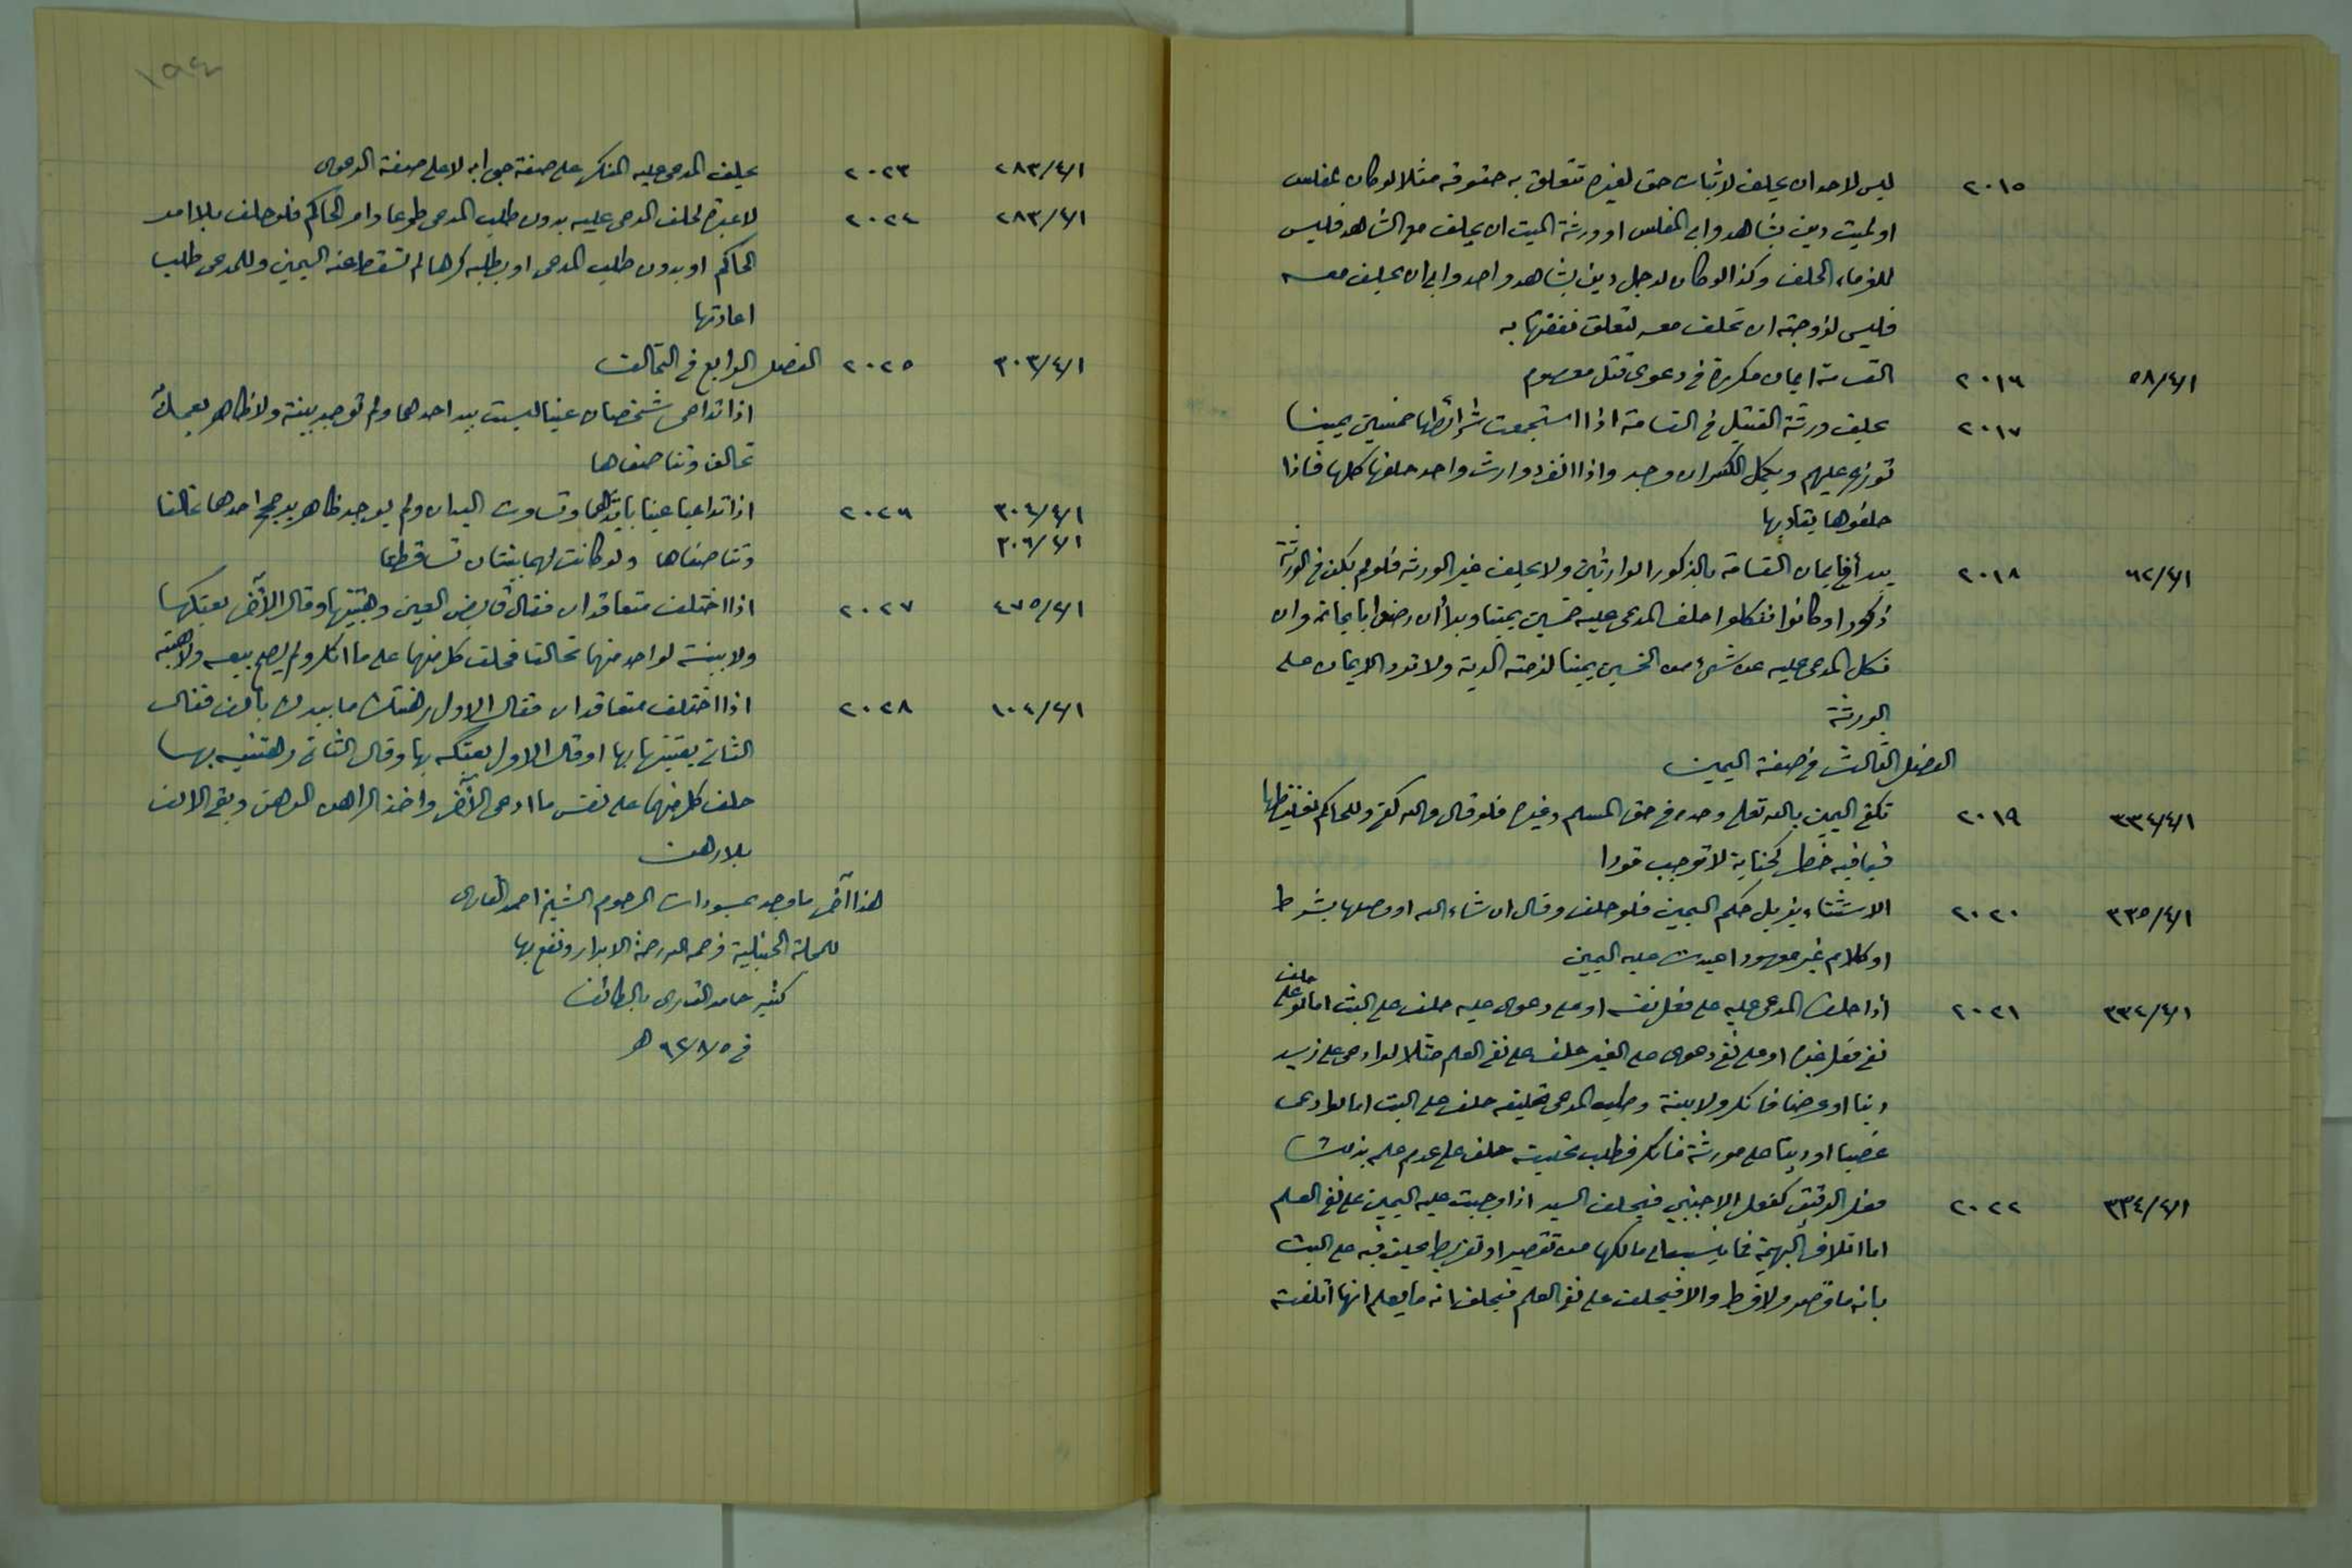 ٢٠١٥ ليس لاحد ان يحلف لاثبات حق لغيره تتعلق به حقوقه مثلا لو كان لمفلس
او لميت دين بشاهد وابى المفلس او ورثة الميت ان يحلف مع الشاهد فليس
للغرماء الحلف وكذا لو كان لرجل دين بشاهد واحد وابى ان يحلف معه
فليس لزوجته ان تحلف معه لتعلق نفقتها به
٥٨/٤/١ ٢٠١٦ القسامة ايمان مكررة في دعوى قتل معصوم
٢٠١٧ يحلف ورثة القتيل في القسامة اذا استجمعت شرائطها خمسين يمينا
توزع عليهم ويكمل الكسر ان وجد واذا انفرد وارث واحد حلفها كلها فاذا
حلفوها يقاد بها
٦٢/٤/١ ٢٠١٨ يبدأ في ايمان القسامة بالذكور الوارثين ولا يحلف غير الورثة فلو لم يكن في الورثة
ذكور او كانوا فنكلوا حلف المدعى عليه خمسين يمينا وبرأ ان رضوا بايمانه وان
نكل المدعى عليه عن شيء من الخمسين يمينا لزمته الدية ولا ترد الايمان على
الورثة
الفصل الثالث في صفة اليمين
٣٣٤/٤/١ ٢٠١٩ تكفي اليمين بالله تعالى وحده في حق المسلم وغيره فلو قال والله كفى وللحاكم تغليظها
فيما فيه خطر كجناية لا توجب قودا
٣٣٥/٤/١ ٢٠٢٠ الاستثناء يزيل حكم اليمين فلو حلف وقال ان شاء الله او وصلها بشرط
او كلام غير معهود اعيدت عليه اليمين
٣٣٢/٤/١ ٢٠٢١ اذا حلف المدعى عليه على فعل نفسه او على دعوى عليه حلف على البت اما لو حلف على
نفي فعل غيره او على نفي دعوى على الغير حلف على نفي العلم مثلا لو ادعى على زيد
دينا او عرضا فانكر ولا بينة وطلب المدعى تحليفه حلف على البت اما لو ادعى
غصبا او دينا على مورثه فانكر فطلب تحليفه حلف على عدم علمه بذلك
٣٣٤/٤/١ ٢٠٢٢ فعل الرقيق كفعل الاجنبي فيحلف السيد اذا وجبت عليه اليمين على نفي العلم
اما اتلاف البهيمة فما ينسب الى مالكها من تقصير او تفريط يحلف فيه على البت
بانه ما قصر ولا فرط والا فيحلف على نفي العلم فيحلف انه ما يعلم انها اتلفته
١٩٤
٢٨٣/٤/١ ٢٠٢٣ يحلف المدعى عليه المنكر على صفة جوابه لا على صفة الدعوى
٢٨٣/٤/١ ٢٠٢٤ لا عبرة لحلف المدعى عليه بدون طلب المدعى طوعا وامر الحاكم فلو حلف بلا امر
الحاكم او بدون طلب المدعى او بطلبه كرها لم تسقط عنه اليمين وللمدعى طلب
اعادتها
٣٠٣/٤/١ ٢٠٢٥ الفصل الرابع في التحالف
اذا تداعى شخصان عينا ليست بيد احدهما ولم توجد بينة ولا ظاهر يعمل به
تحالفا وتناصفاها
٣٠٤/٤/١ ٢٠٢٦ اذا تداعيا عينا بايديهما وتساوت اليدان ولم يوجد ظاهر يرجح احدهما تحالفا
٣٠٦/٤/١ وتناصفاها ولو كانت لهما بينتان تساقطتا
٤٧٥/٤/١ ٢٠٢٧ اذا اختلف متعاقدان فقال قابض العين وهبتنيها وقال الآخر بعتكها
ولا بينة لواحد منهما تحالفا فحلف كل منهما على ما انكر ولم يصح بيعه ولا هبته
١٠٤/٤/١ ٢٠٢٨ اذا اختلف متعاقدان فقال الاول رهنتك ما بيدك بالف فقال
الثاني بعتنيها بها او قال الاول بعتكه بها وقال الثاني رهنتنيه بها
حلف كل منهما على نفي ما ادعى الآخر واخذ الراهن الرهن وبقى الالف
بلا رهن
هذا آخر ما وجد بمسودات المرحوم الشيخ احمد القارى
للمجلة الحنبلية فرحمه الله رحمة الابرار ونفع بها
كتبه حامد القارى بالطائف
في ٥/٨/٩٢ هـ